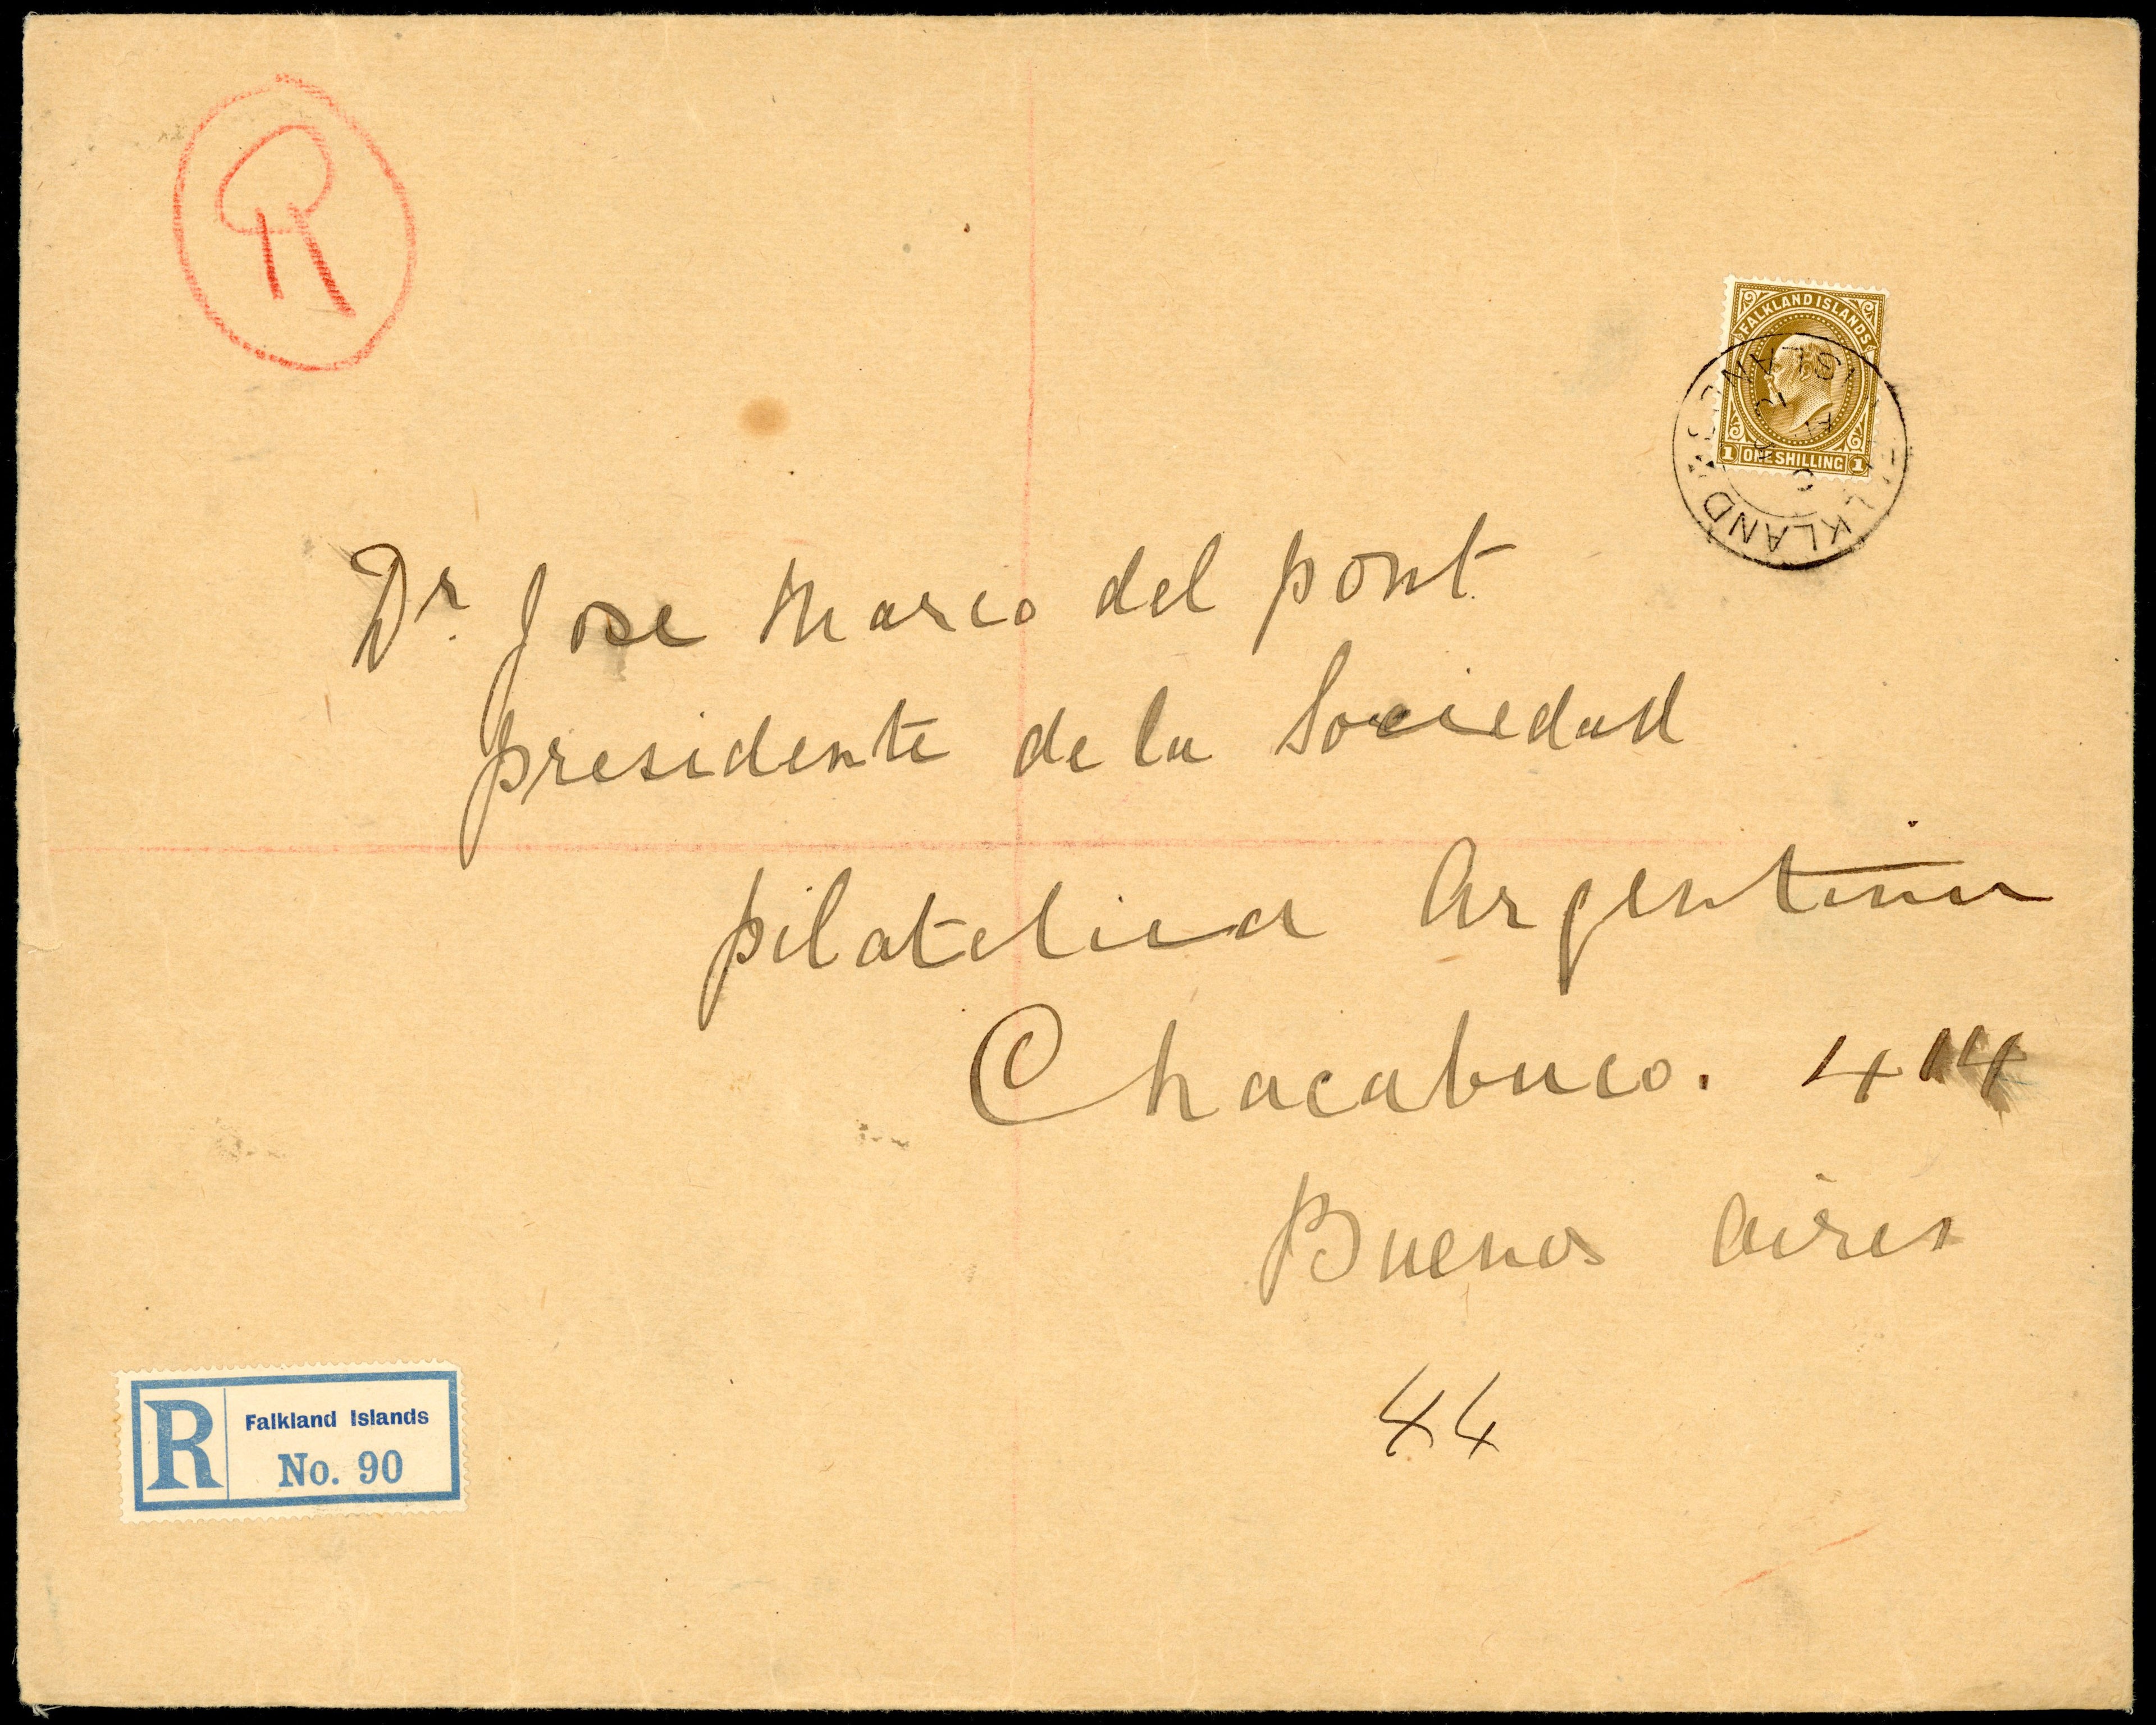 R
FALKLAND ISLANDS
1 ONE SHILLING 1
FALKLAND ISLANDS
Dr. Jose Marco del pont
presidente de la Sociedad
pilatelica Argentina
Chacabuco. 414
Buenos Aires
44
R Falkland Islands
No. 90